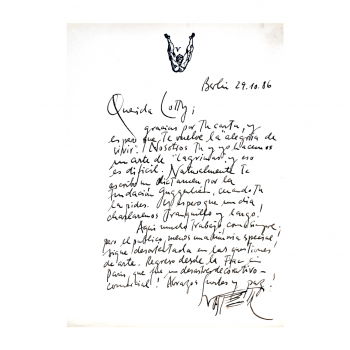 Berlin 29.10.86
Querida Lotty;
gracias por tu carta, y
espero que te vuelve la "alegria de
vivir". Nosotros tu y yo hacemos
un arte de "lagrimas", y eso
es dificil. Naturalmente te
escribo un dictamen por la
fundación Guggenheim, cuando tu
la pides. Yo espero que un dia
charlaremos tranquilos y largo.
Aqui mucho trabajo, como siempre,
pero el publico, menos una minoria special,
sigue desorientada en las questiones
de arte. Regreso desde la Fiac in
Paris, que fue un desastre decorativo-
comercial! Abrazos fuertes y paz!